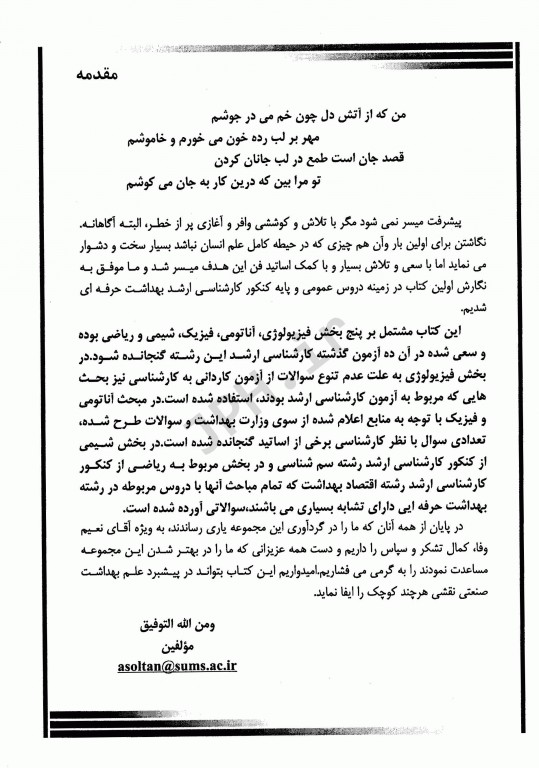 مقدمه
من که از آتش دل چون خم می در جوشم
مهر بر لب زده خون می خورم و خاموشم
قصد جان است طمع در لب جانان کردن
تو مرا بین که درین کار به جان می کوشم
پیشرفت میسر نمی شود مگر با تلاش و کوششی وافر و آغازی پر از خطر، البته آگاهانه.
نگاشتن برای اولین بار وآن هم چیزی که در حیطه کامل علم انسان نباشد بسیار سخت و دشوار
می نماید اما با سعی و تلاش بسیار و با کمک اساتید فن این هدف میسر شد و ما موفق به
نگارش اولین کتاب در زمینه دروس عمومی و پایه کنکور کارشناسی ارشد بهداشت حرفه ای
شدیم.
این کتاب مشتمل بر پنج بخش فیزیولوژی، آناتومی، فیزیک، شیمی و ریاضی بوده
و سعی شده در آن ده آزمون گذشته کارشناسی ارشد این رشته گنجانده شود.در
بخش فیزیولوژی به علت عدم تنوع سوالات از آزمون کاردانی به کارشناسی نیز بحث
هایی که مربوط به آزمون کارشناسی ارشد بودند، استفاده شده است.در مبحث آناتومی
و فیزیک با توجه به منابع اعلام شده از سوی وزارت بهداشت و سوالات طرح شده،
تعدادی سوال با نظر کارشناسی برخی از اساتید گنجانده شده است.در بخش شیمی
از کنکور کارشناسی ارشد رشته سم شناسی و در بخش مربوط به ریاضی از کنکور
کارشناسی ارشد رشته اقتصاد بهداشت که تمام مباحث آنها با دروس مربوطه در رشته
بهداشت حرفه ایی دارای تشابه بسیاری می باشند،سوالاتی آورده شده است.
در پایان از همه آنان که ما را در گردآوری این مجموعه یاری رساندند، به ویژه آقای نعیم
وفا، کمال تشکر و سپاس را داریم و دست همه عزیزانی که ما را در بهتر شدن این مجموعه
مساعدت نمودند را به گرمی می فشاریم.امیدواریم این کتاب بتواند در پیشبرد علم بهداشت
صنعتی نقشی هرچند کوچک را ایفا نماید.
ومن الله التوفیق
مؤلفین
asoltan@sums.ac.ir
JPH.ir